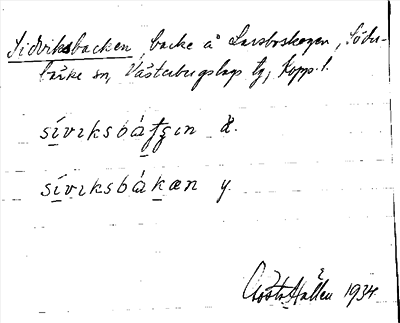 Sidviksbacken, backe å Larsboskogen, Söder-
barke sn, Västerbergslags tg, Kopp. l.
sívɩksbáƫʂɩn ä.
sívɩksbákæn y.
Gösta Hallén 1934.